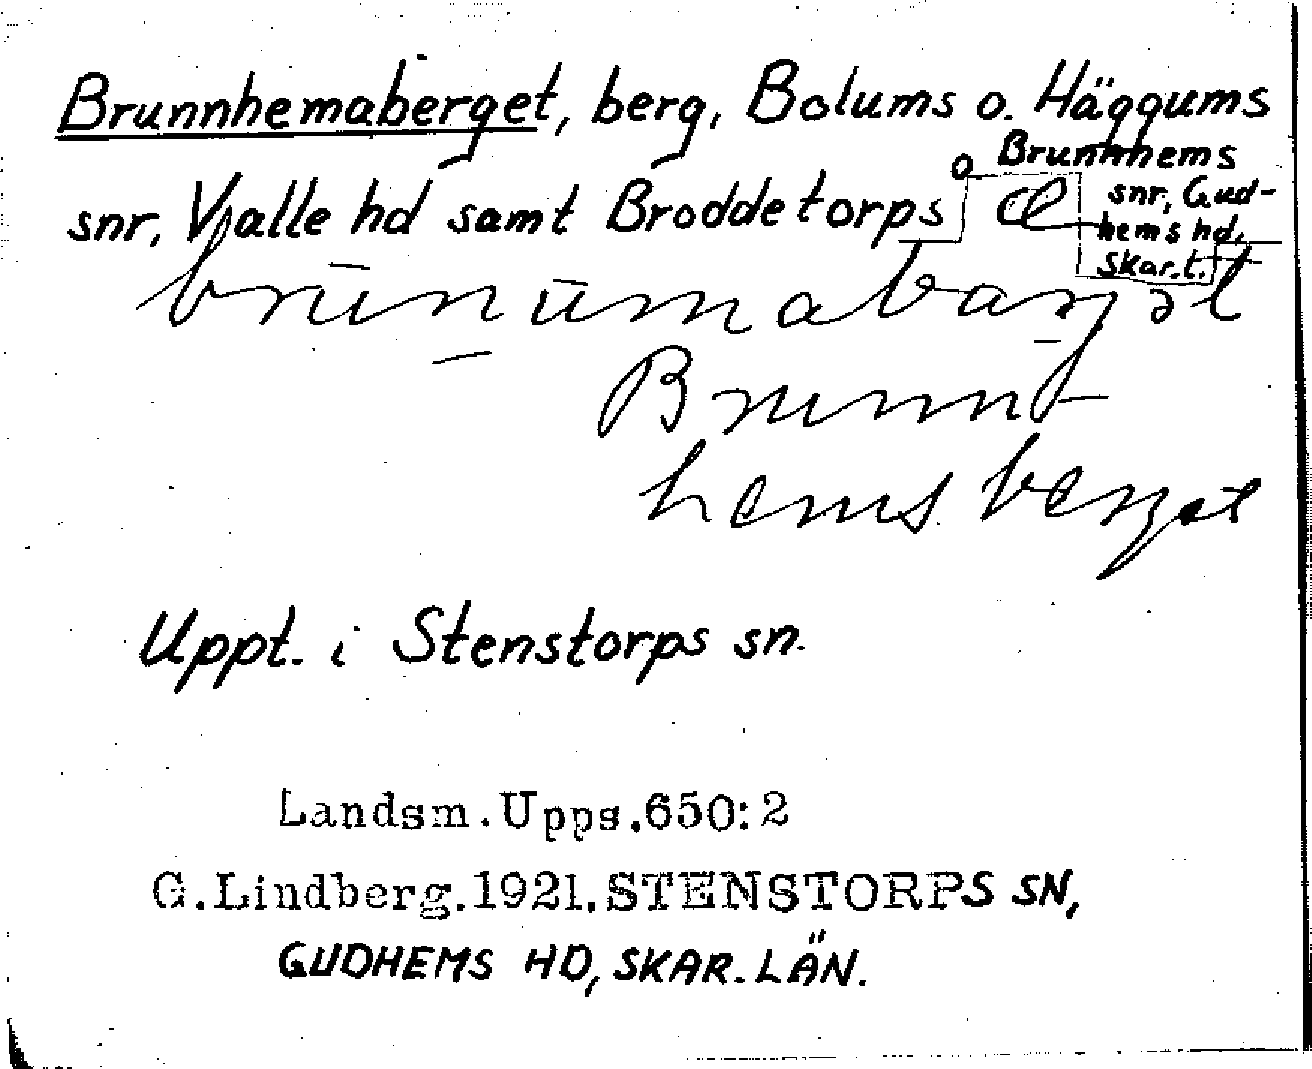 Brunnhemaberget, berg, Bolums o. Häggums
snr, Valle hd samt Broddetorps
o Brunnhems
snr, Gud-
hems hd,
Skar. l.
Brunn-
hemsberget
Uppt. i Stenstorps sn.
Landsm. Upps. 650:2
G. Lindberg. 1921. STENSTORPS SN,
GUDHEMS HD, SKAR. LÄN.